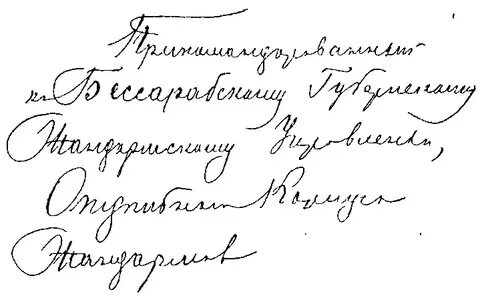 Прикомандированный
к Бессарабскому Губернскому
Жандармскому Управлению,
Отдельного Корпуса
Жандармов